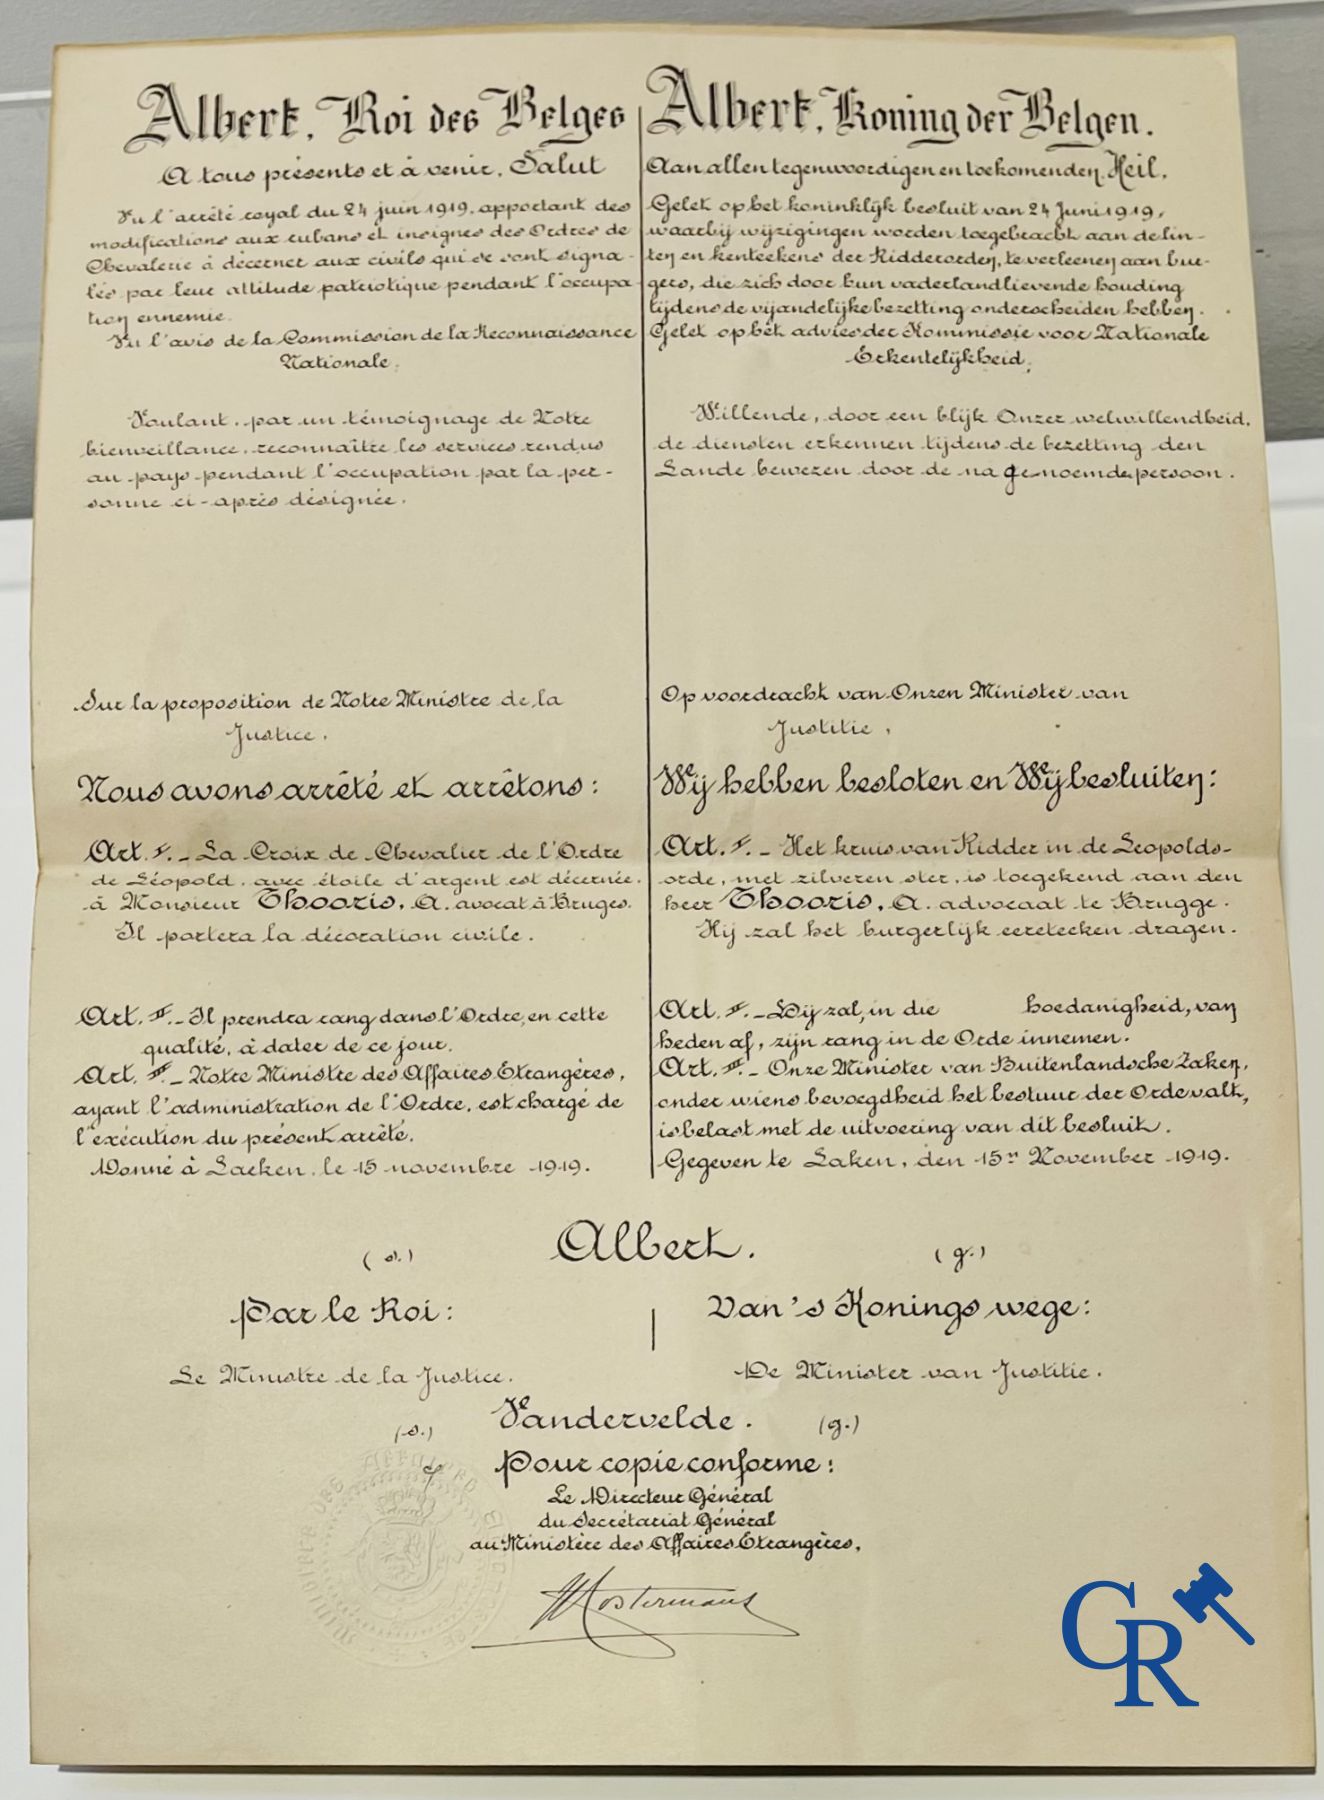 Albert, Roi des Belges
A tous présents et à venir, Salut
Vu l'arrêté royal du 24 juin 1919, apportant des
modifications aux rubans et insignes des Ordres de
Chevalerie à décerner aux civils qui se sont signa-
lés par leur attitude patriotique pendant l'occupa
tion ennemie.
Vu l'avis de la Commission de la Reconnaissance
Nationale,
Voulant, par un témoignage de Notre
bienveillance, reconnaître les services rendus
au pays pendant l'occupation par la per-
sonne ci-après désignée.
Sur la proposition de Notre Ministre de la
Justice,
Nous avons arrêté et arrêtons:
Art. I. - La Croix de Chevalier de l'Ordre
de Léopold, avec étoile d'argent est décernée
à Monsieur Thooris, A. avocat à Bruges.
Il portera la décoration civile.
Art. II. - Il prendra rang dans l'Ordre, en cette
qualité, à dater de ce jour.
Art. III. - Notre Ministre des Affaires Etrangères,
ayant l'administration de l'Ordre, est chargé de
l'exécution du présent arrêté.
Donné à Laeken, le 15 novembre 1919.
Albert, Koning der Belgen.
Aan allen tegenwoordigen en toekomenden, Heil.
Gelet op het koninklijk besluit van 24 Juni 1919,
waarbij wijzigingen worden toegebracht aan de lin-
ten en kenteekens der Ridderorden, te verleenen aan bur-
gers, die zich door hun vaderlandlievende houding
tijdens de vijandelijke bezetting onderscheiden hebben.
Gelet op het advies der Kommissie voor Nationale
Erkentelijkheid;
Willende, door een blijk Onzer welwillendheid,
de diensten erkennen tijdens de bezetting den
Lande bewezen door de nagenoemde persoon.
Op voordracht van Onzen Minister van
Justitie,
Wij hebben besloten en Wij besluiten:
Art. I. - Het kruis van Ridder in de Leopolds-
orde, met zilveren ster, is toegekend aan den
heer Thooris, A. advocaat te Brugge.
Hij zal het burgerlijk eereteeken dragen.
Art. II. - Dij zal, in die hoedanigheid, van
heden af, zijn rang in de Orde innemen.
Art. III. - Onze Minister van Buitenlandsche Zaken,
onder wiens bevoegdheid het bestuur der Orde valt,
is belast met de uitvoering van dit besluit.
Gegeven te Laken, den 15n November 1919.
(s.) Albert. (g.)
Par le Roi: Van 's Konings wege:
Le Ministre de la Justice. De Minister van Justitie.
(s.) Vandervelde. (g.)
Pour copie conforme:
Le Directeur Général
du Secrétariat Général
au Ministère des Affaires Etrangères,
GR